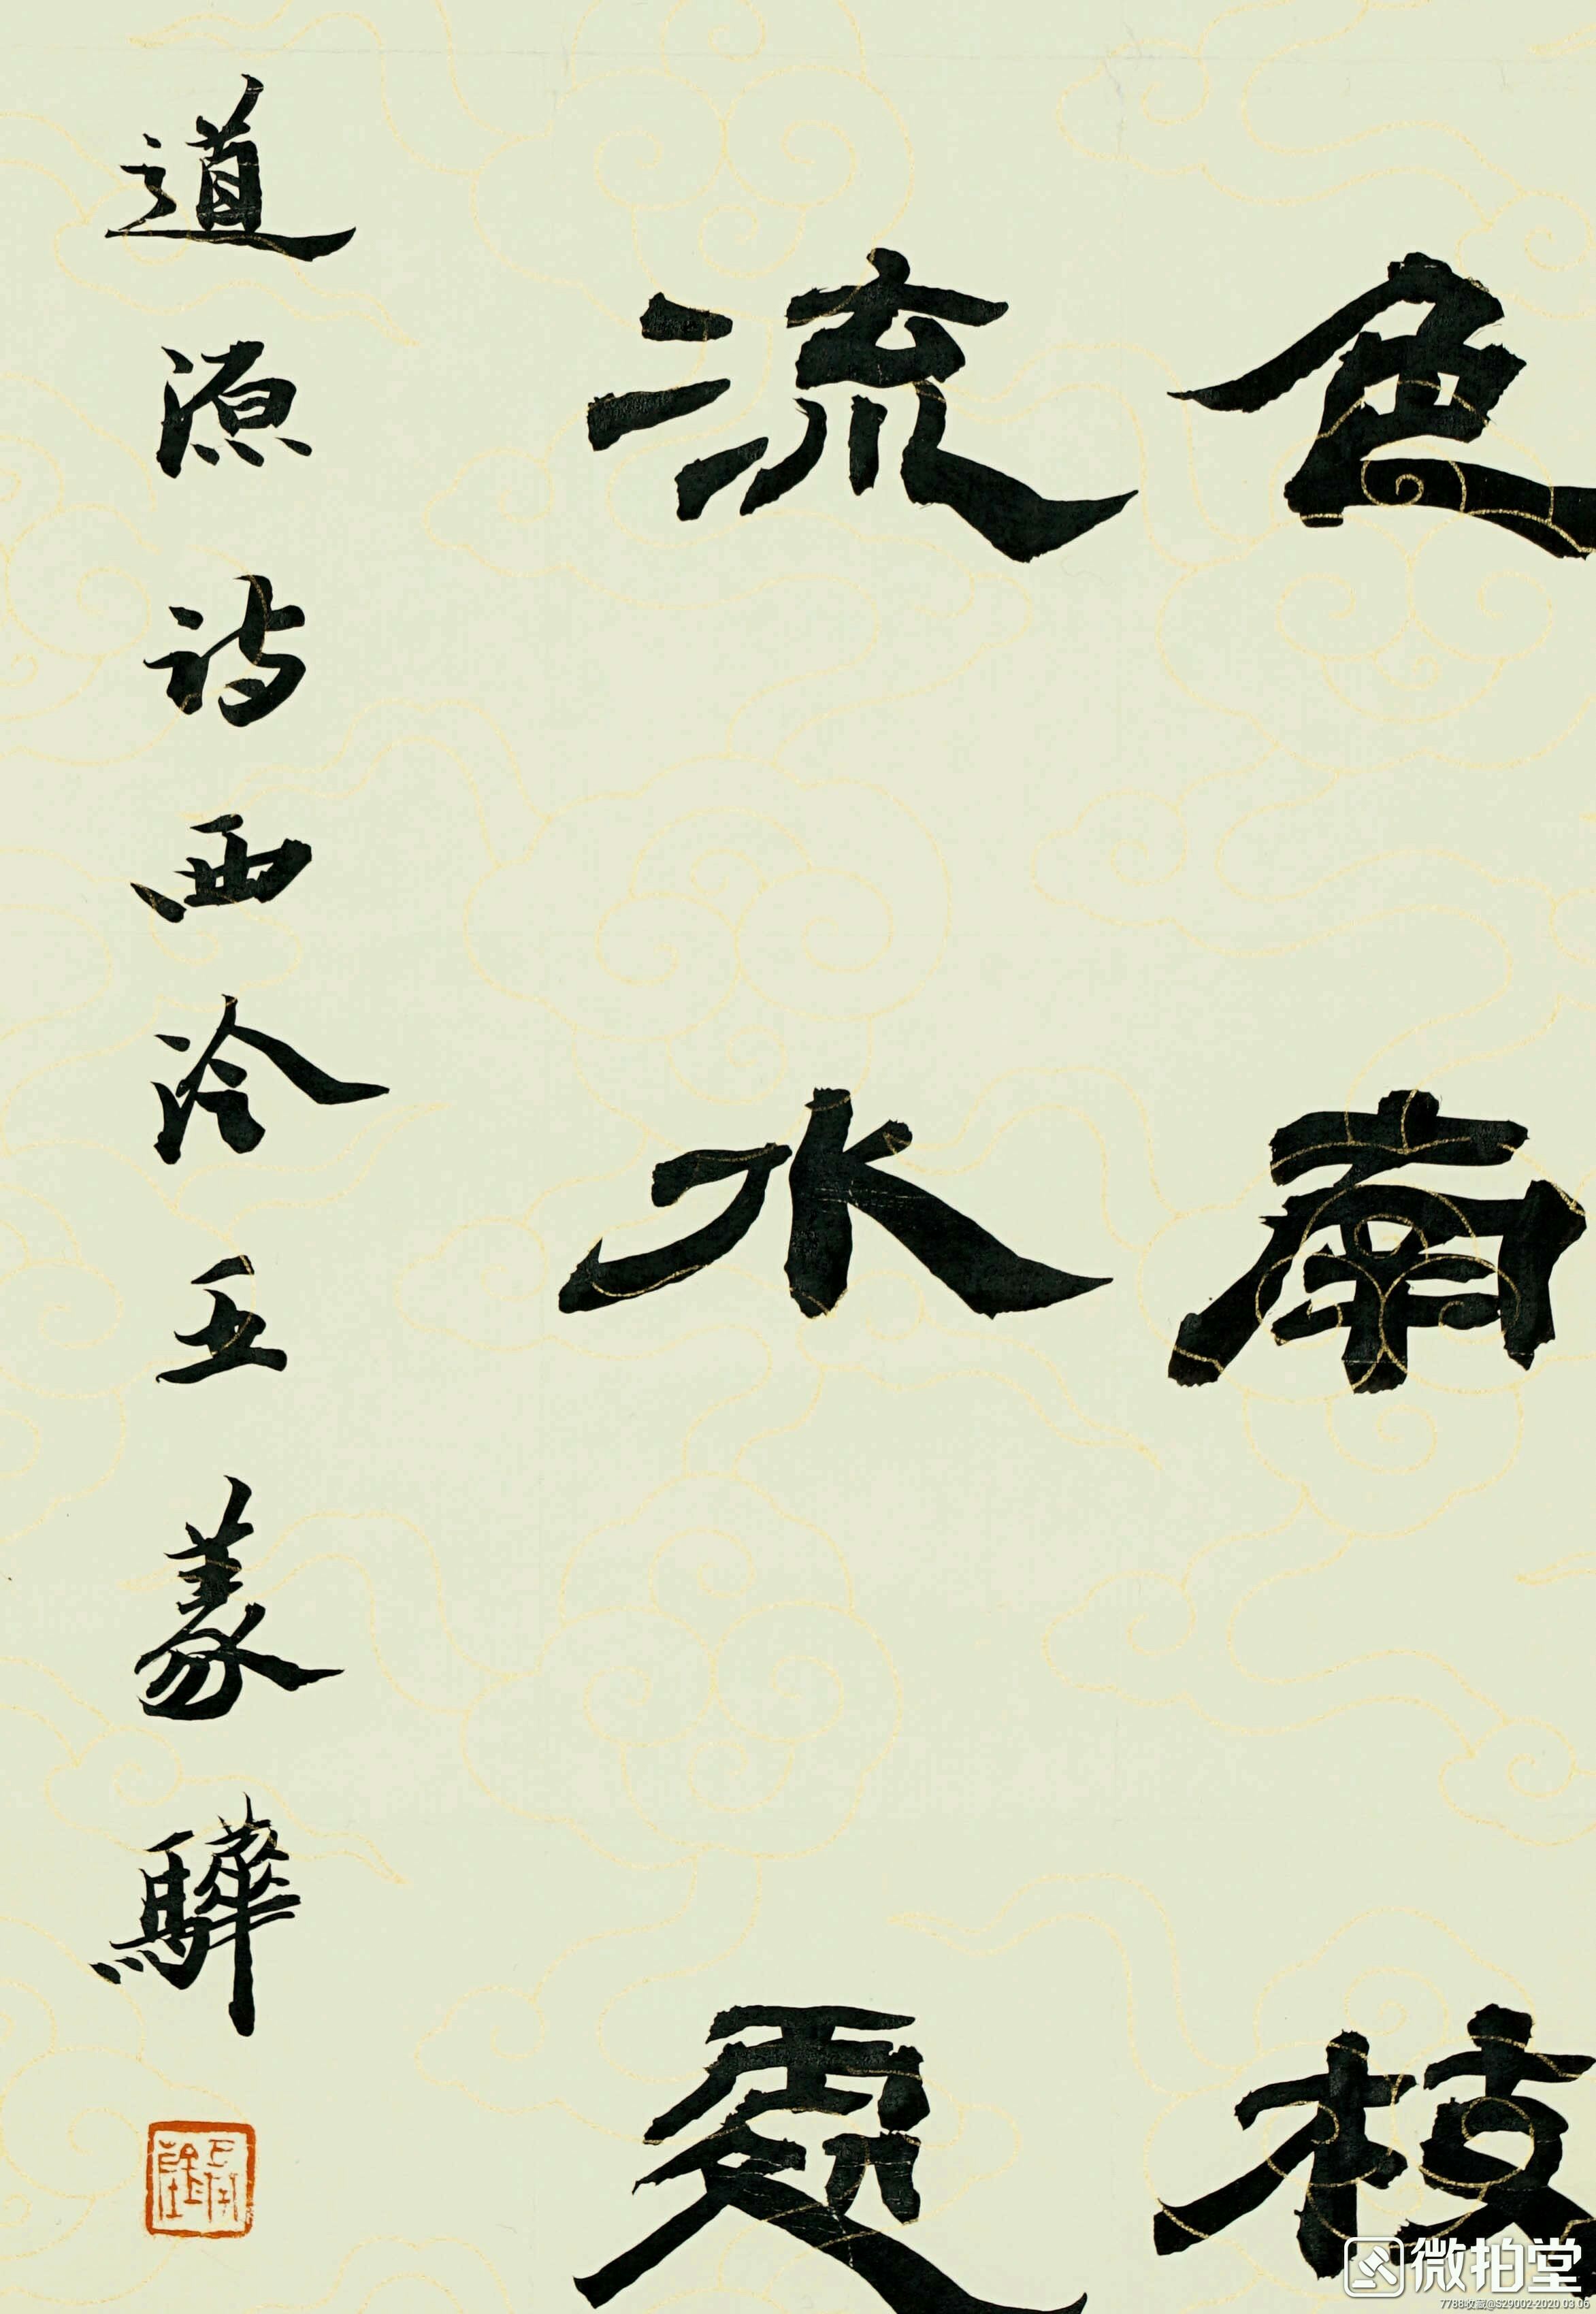 色南枝
流水處
道源詩西泠王義驊
微拍堂
7788收藏@S29002-2020 03 06